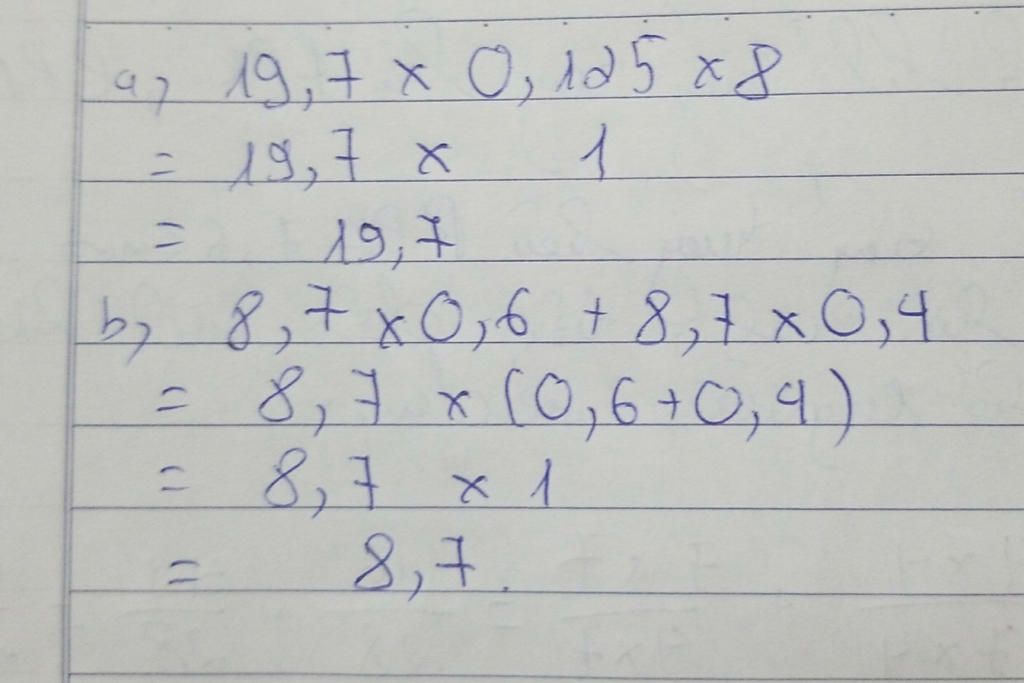 a, 19,7 x 0,125 x 8
= 19,7 x 1
= 19,7
b, 8,7 x 0,6 + 8,7 x 0,4
= 8,7 x (0,6+0,4)
= 8,7 x 1
= 8,7.